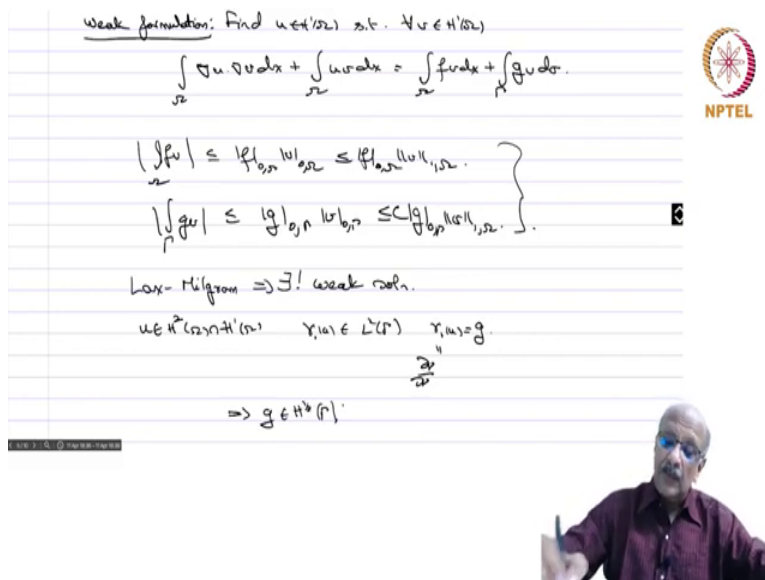 Weak formulation: Find u ∈ H¹(Ω) s.t. ∀v ∈ H¹(Ω)
∫_Ω ∇u.∇v dx + ∫_Ω uv dx = ∫_Ω fv dx + ∫_Γ gv dσ.
NPTEL
|∫_Ω fv| ≤ |f|_{0,Ω} |v|_{0,Ω} ≤ |f|_{0,Ω} ||v||_{1,Ω}.
|∫_Γ gv| ≤ |g|_{0,Γ} |v|_{0,Γ} ≤ C|g|_{0,Γ} ||v||_{1,Ω}.
Lax-Milgram ⇒ ∃! weak soln.
u ∈ H²(Ω) ∩ H¹(Ω) γ₁(u) ∈ L²(Γ) γ₁(u) = g.
"
∂u/∂ν
⇒ g ∈ H^{1/2}(Γ).